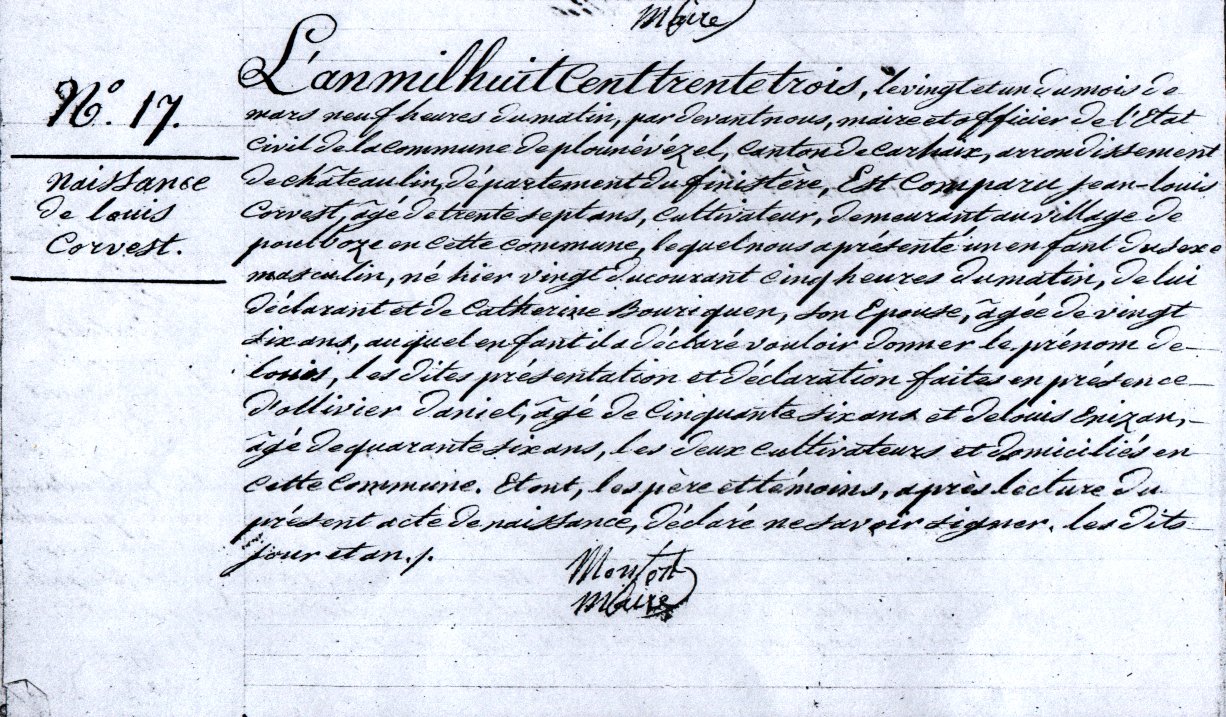 Maire
N.º 17.
Naissance
de louis
Corvest.
L'an mil huit Cent trente trois, le vingt et un du mois de
mars neuf heures du matin, par devant nous, maire et officier de l'Etat
Civil de la commune de plounévézel, Canton de Carhaix, arrondissement
de châteaulin, département du finistère, Est Comparu jean-louis
Corvest, âgé de trente sept ans, Cultivateur, demeurant au village de
poulboze en Cette commune, lequel nous a présenté un enfant du sexe
masculin, né hier vingt du courant Cinq heures du matin, de lui
déclarant et de Catherine Bouriquen, son Epouse, âgée de vingt
six ans, auquel enfant il a déclaré vouloir donner le prénom de
louis, les dites présentation et déclaration faites en présence
d'ollivier daniel, âgé de Cinquante six ans et de louis Enizan,
âgé de quarante six ans, les deux Cultivateurs et domiciliés en
Cette Commune. Et ont, les père et témoins, après lecture du
présent acte de naissance, déclaré ne savoir signer. les dits
jour et an ./.
Monfort
Maire